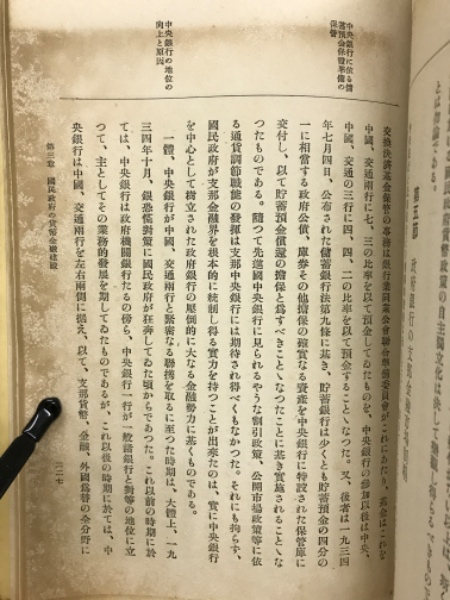 とは勿論である。
中央銀行に依る儲
蓄預金保證準備の
保管
中央銀行の地位の
向上と原因
中國、交通兩行に七、三の比率を以て預金してゐたものを、中央銀行の參加以後は中央、
中國、交通の三行に四、四、二の比率を以て預金することゝなつた。又、後者は一九三四
年七月四日、公布された儲蓄銀行法第九條に基き、貯蓄銀行は少くとも貯蓄預金の四分の
一に相當する政府公債、庫券その他擔保の確實なる資產を中央銀行に特設された保管庫に
交付し、以て貯蓄預金償還の擔保と爲すべきことゝなつたことに基き實施されることゝな
つたものである。隨つて先進國中央銀行に見られるやうな割引政策、公開市場政策等に依
る通貨調節職能の發揮は支那中央銀行には期待され得べくもなかつた。それにも拘らず、
國民政府が支那金融界を根本的に統制し得る實力を持つことが出來たのは、實に中央銀行
を中心として樹立された政府銀行の壓倒的に大なる金融勢力に基くものである。
一體、中央銀行が中國、交通兩行と緊密なる聯携を取るに至つた時期は、大體上、一九
三四年十月、銀恐慌對策に國民政府が狂奔してゐた頃からであつた。これ以前の時期に於
ては、中央銀行は政府機關銀行たるの傍ら、中央銀行一行が一般諸銀行と對等の地位に立
つて、主としてその業務的發展を期してゐたものであるが、これ以後の時期に於ては、中
央銀行は中國、交通兩行を左右兩側に揃え、以て、支那貨幣、金融、外國爲替の全分野に
第三章 國民政府の貨幣金融建設
六二七